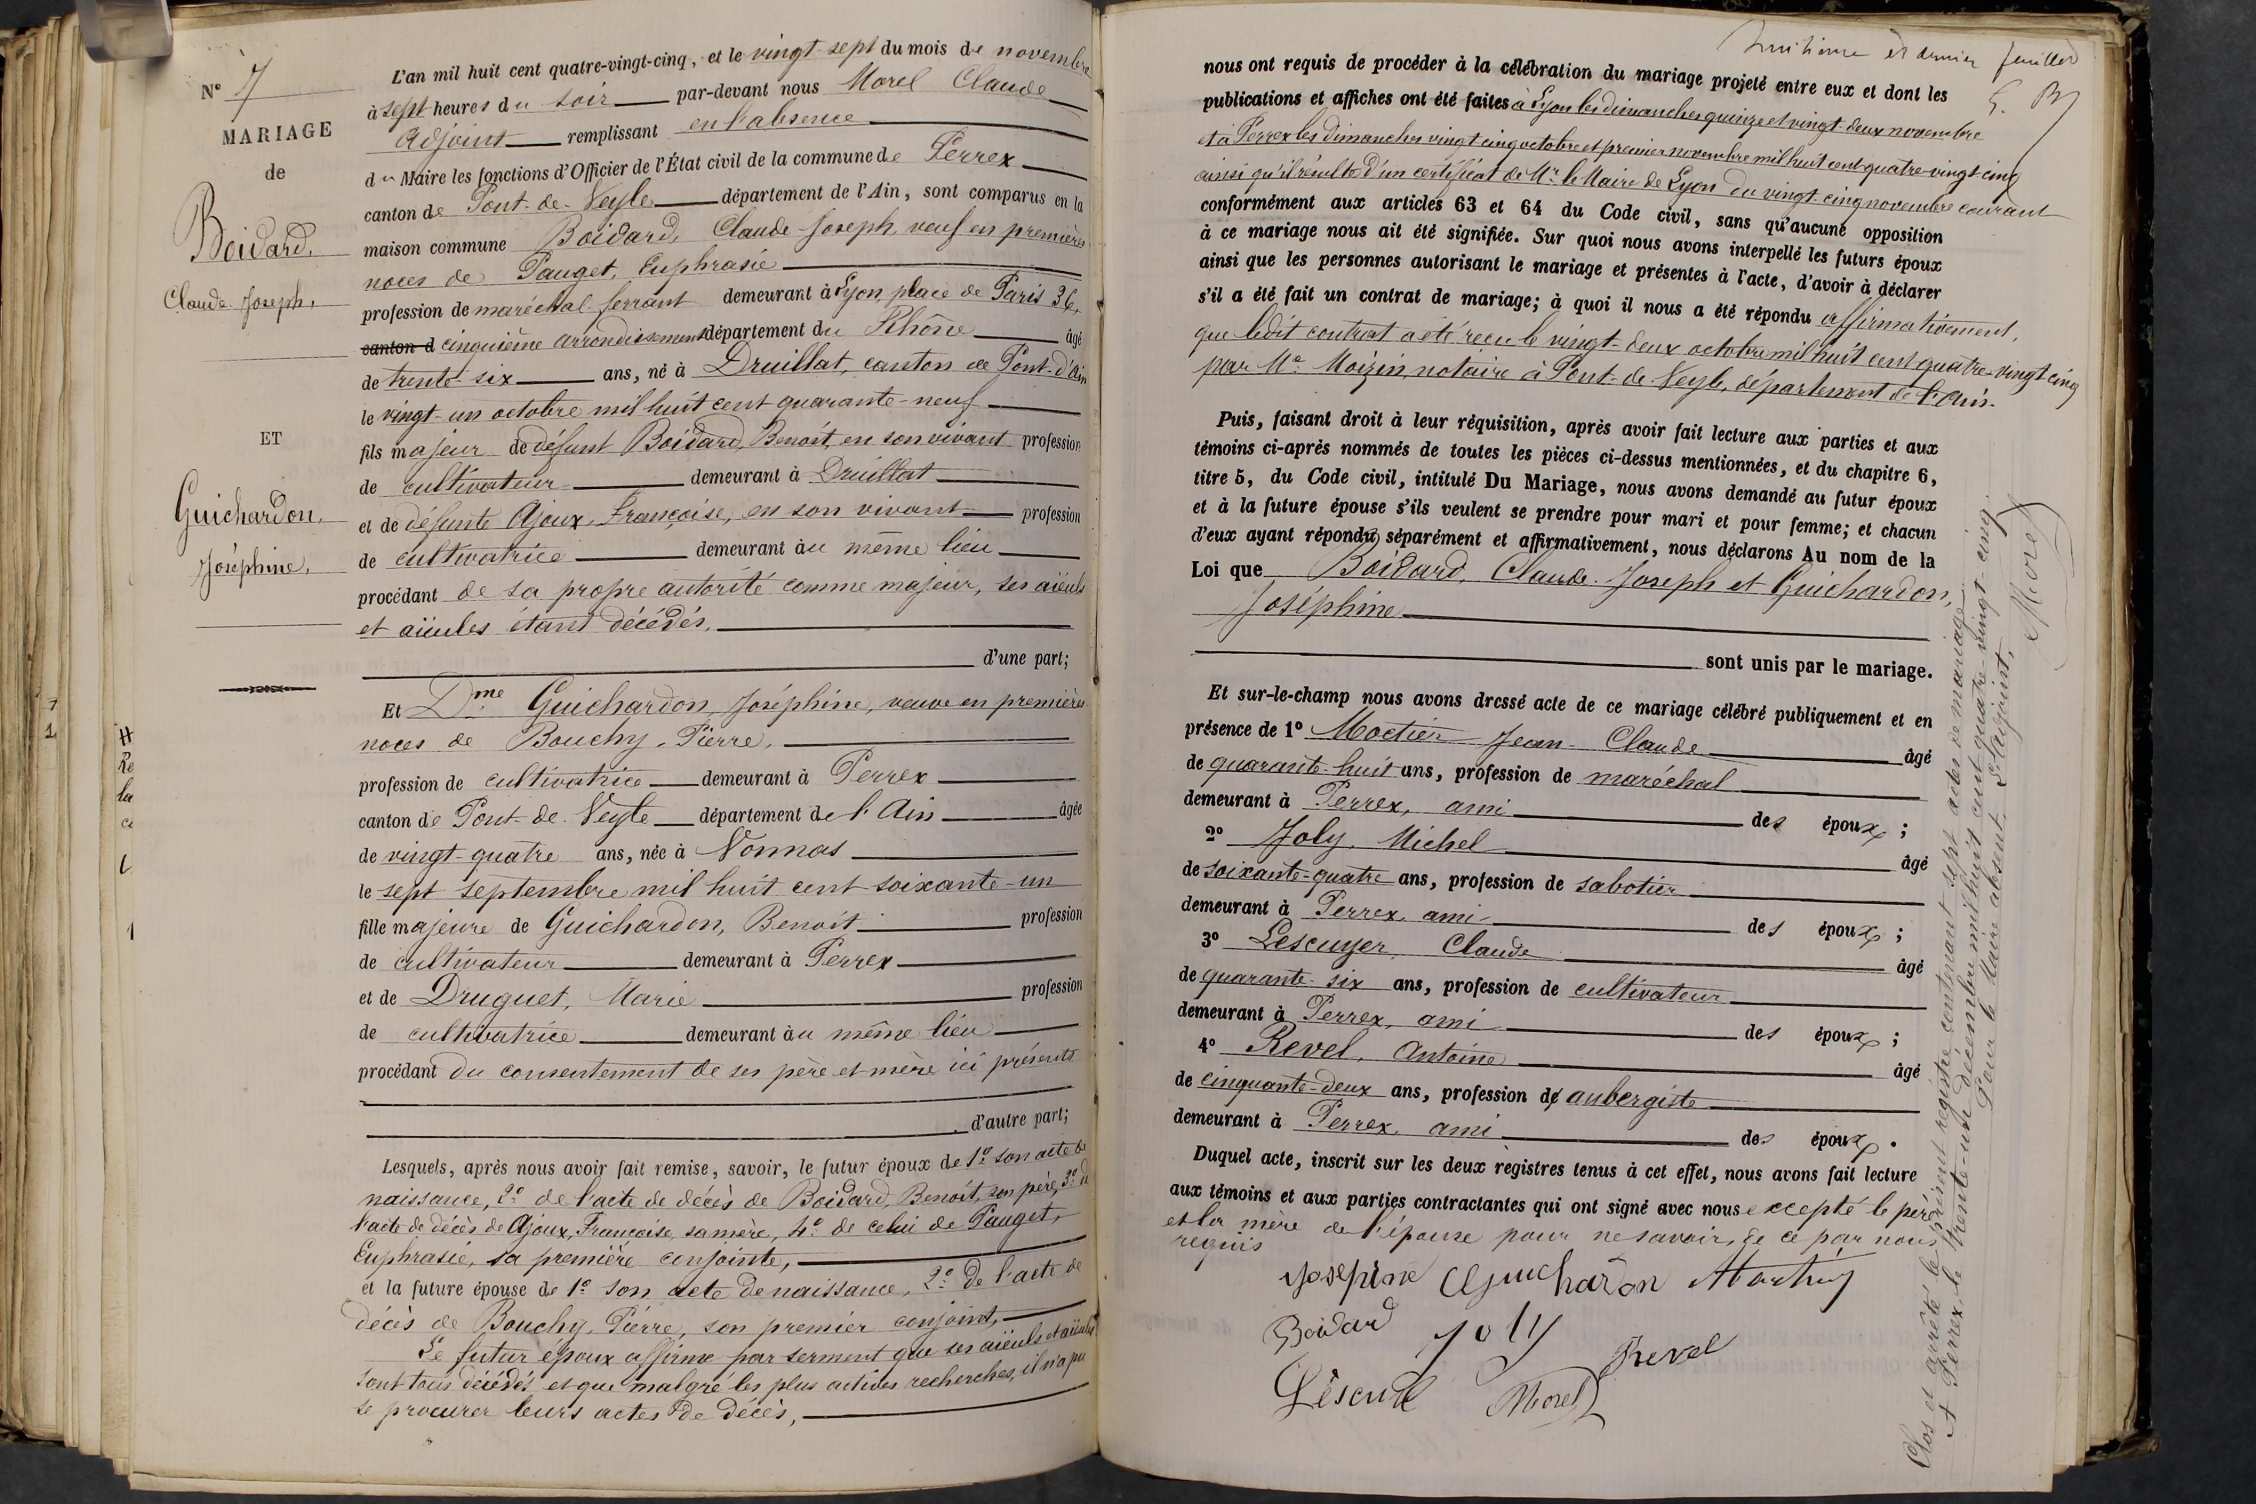 N° 7
MARIAGE
de
Boidard,
Claude Joseph,
ET
Guichardon,
Joséphine,
L'an mil huit cent quatre-vingt-cinq, et le vingt-sept du mois de novembre
à sept heures du soir par-devant nous Morel Claude
Adjoint remplissant en l'absence
du Maire les fonctions d'Officier de l'État civil de la commune de Perrex
canton de Pont-de-Veyle département de l'Ain, sont comparus en la
maison commune Boidard, Claude Joseph, veuf en premières
noces de Pauget, Euphrasie
profession de maréchal ferrant demeurant à Lyon place de Paris 36,
canton d cinquième arrondissement département du Rhône âgé
de trente-six ans, né à Druillat, canton de Pont-d'Ain
le vingt-un octobre mil huit cent quarante-neuf
fils majeur de défunt Boidard, Benoît, en son vivant profession
de cultivateur demeurant à Druillat
et de défunte Ajoux, Françoise, en son vivant profession
de cultivatrice demeurant au même lieu
procédant de sa propre autorité comme majeur, ses aïeuls
et aïeules étant décédés.
d'une part;
Et Dme Guichardon, Joséphine, veuve en premières
noces de Bouchy, Pierre,
profession de cultivatrice demeurant à Perrex
canton de Pont-de-Veyle département de l'Ain âgée
de vingt-quatre ans, née à Vonnas
le sept septembre mil huit cent soixante-un
fille majeure de Guichardon, Benoît profession
de cultivateur demeurant à Perrex
et de Druguet, Marie profession
de cultivatrice demeurant au même lieu
procédant du consentement de ses père et mère ici présents
d'autre part;
Lesquels, après nous avoir fait remise, savoir, le futur époux de 1° son acte de
naissance, 2° de l'acte de décès de Boidard, Benoît, son père, 3° de
l'acte de décès de Ajoux, Françoise, sa mère, 4° de celui de Pauget,
Euphrasie, sa première conjointe,
et la future épouse de 1° son acte de naissance, 2° de l'acte de
décès de Bouchy, Pierre, son premier conjoint,
Le futur époux affirme par serment que ses aïeuls et aïeules
sont tous décédés et que malgré les plus actives recherches, il n'a pu
se procurer leurs actes de décès,
huitième et dernier feuillet
nous ont requis de procéder à la célébration du mariage projeté entre eux et dont les
publications et affiches ont été faites à Lyon les dimanches quinze et vingt-deux novembre
et à Perrex les dimanches vingt cinq octobre et premier novembre mil huit cent quatre-vingt-cinq
ainsi qu'il résulte d'un certificat de Mr le Maire de Lyon du vingt-cinq novembre courant
conformément aux articles 63 et 64 du Code civil, sans qu'aucune opposition
à ce mariage nous ait été signifiée. Sur quoi nous avons interpellé les futurs époux
ainsi que les personnes autorisant le mariage et présentes à l'acte, d'avoir à déclarer
s'il a été fait un contrat de mariage; à quoi il nous a été répondu affirmativement,
que ledit contrat a été reçu le vingt-deux octobre mil huit cent quatre-vingt-cinq
par Me Moizin, notaire à Pont-de-Veyle, département de l'Ain.
Puis, faisant droit à leur réquisition, après avoir fait lecture aux parties et aux
témoins ci-après nommés de toutes les pièces ci-dessus mentionnées, et du chapitre 6,
titre 5, du Code civil, intitulé Du Mariage, nous avons demandé au futur époux
et à la future épouse s'ils veulent se prendre pour mari et pour femme; et chacun
d'eux ayant répondu séparément et affirmativement, nous déclarons Au nom de la
Loi que Boidard, Claude Joseph et Guichardon,
Joséphine
sont unis par le mariage.
Et sur-le-champ nous avons dressé acte de ce mariage célébré publiquement et en
présence de 1° Moctier Jean-Claude âgé
de quarante-huit ans, profession de maréchal
demeurant à Perrex, ami des époux;
2° Joly, Michel âgé
de soixante-quatre ans, profession de sabotier
demeurant à Perrex, ami des époux;
3° Lescuyer, Claude âgé
de quarante-six ans, profession de cultivateur
demeurant à Perrex, ami des époux;
4° Revel, Antoine âgé
de cinquante-deux ans, profession de aubergiste
demeurant à Perrex, ami des époux.
Duquel acte, inscrit sur les deux registres tenus à cet effet, nous avons fait lecture
aux témoins et aux parties contractantes qui ont signé avec nous excepté le père
et la mère de l'épouse pour ne savoir, de ce par nous
requis
Josepine Guichardon
Boidard Joly Revel
Morel
Clos et arrêté le présent registre contenant sept actes de mariage
A Perrex, le trente-un décembre mil huit cent quatre-vingt-cinq.
Pour le Maire absent, L'adjoint,
Morel